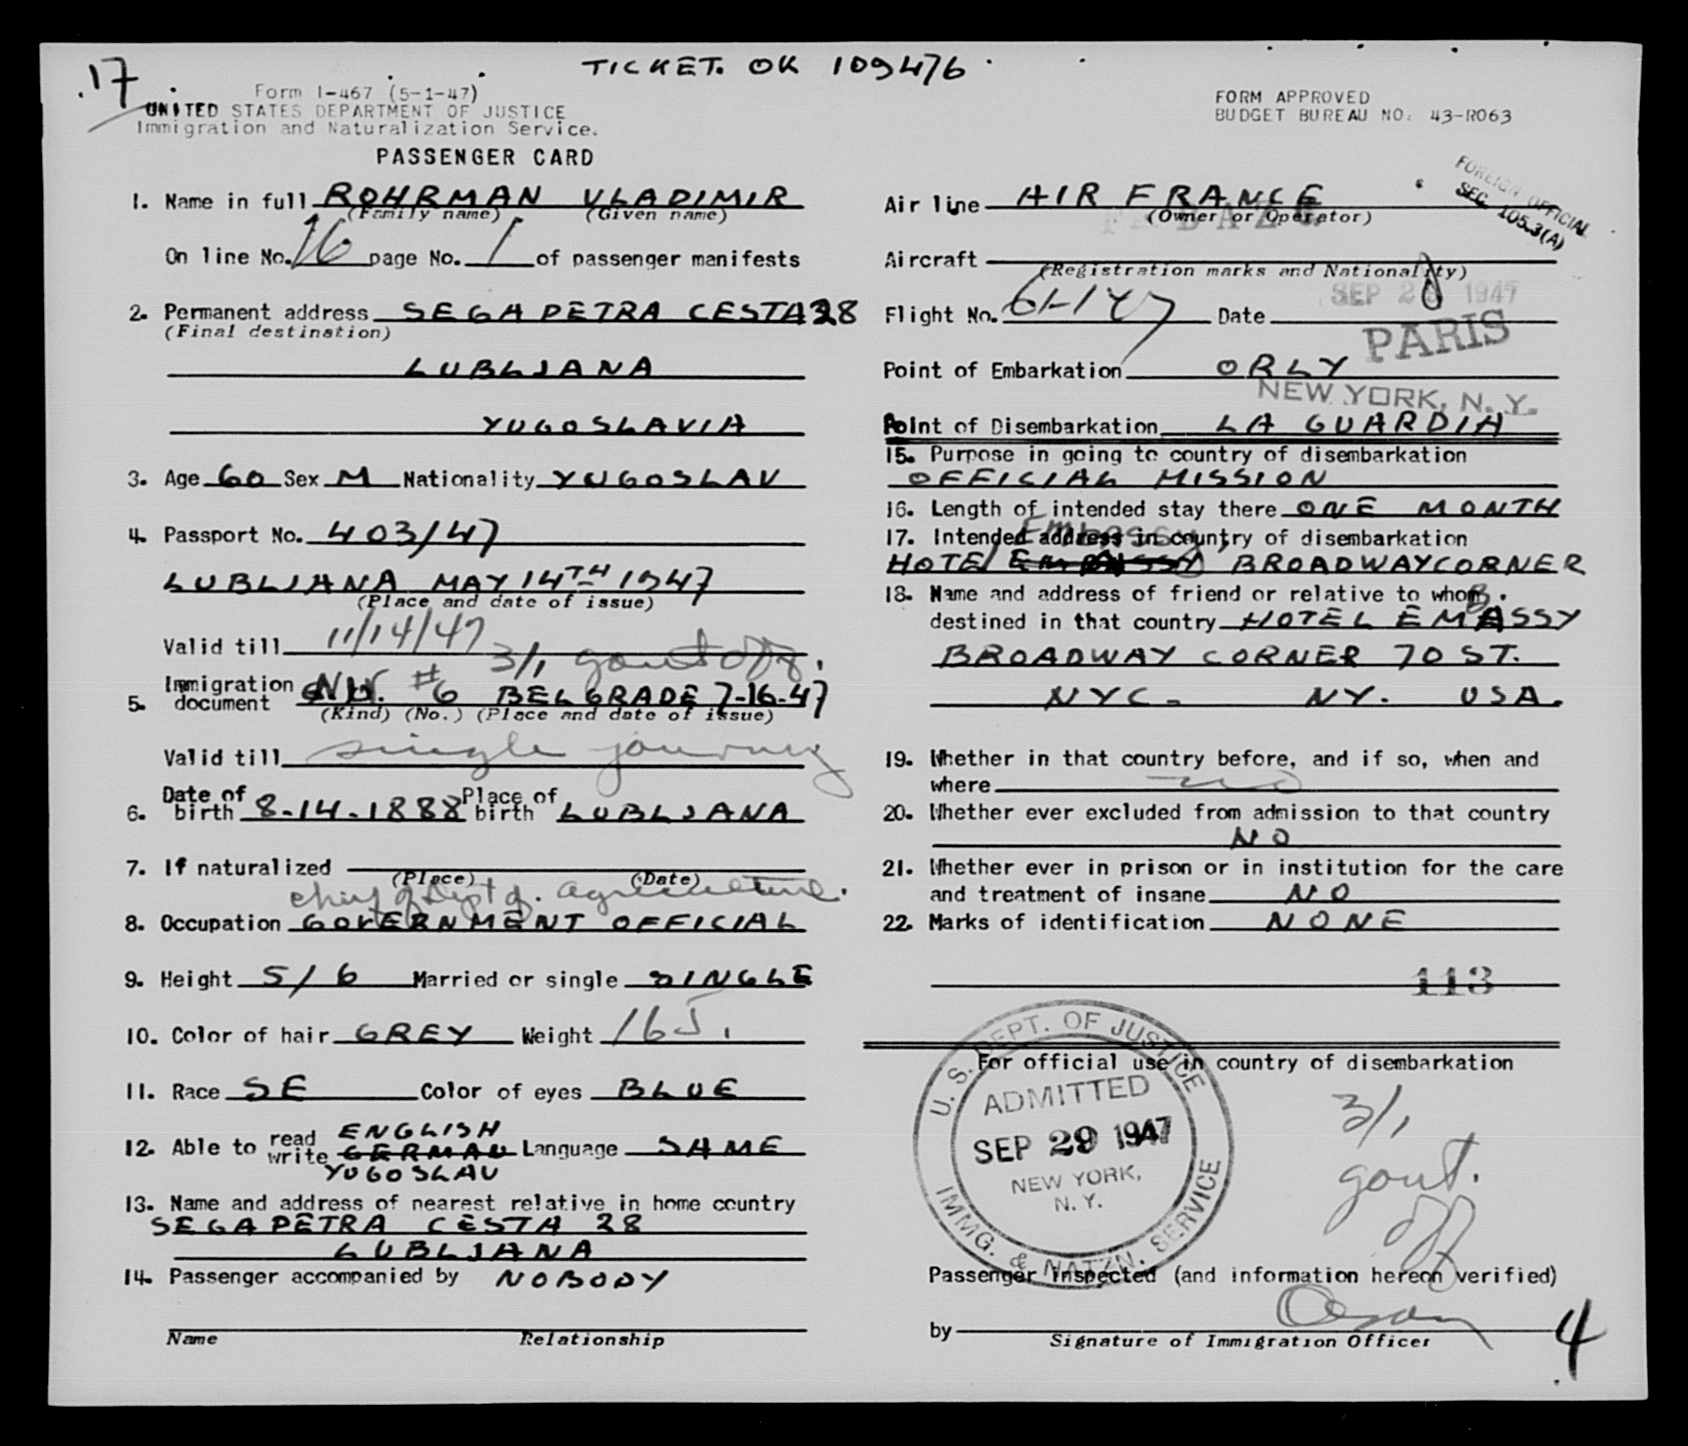 17
TICKET. OK 109476
Form I-467 (5-1-47)
UNITED STATES DEPARTMENT OF JUSTICE
Immigration and Naturalization Service.
PASSENGER CARD
FORM APPROVED
BUDGET BUREAU NO. 43-R063
FOREIGN OFFICIAL
SEC. 105.3(A)
1. Name in full ROHRMAN VLADIMIR
(Family name) (Given name)
On line No. 16 page No. 1 of passenger manifests
2. Permanent address SEGA PETRA CESTA 28
(Final destination)
LUBLJANA
YUGOSLAVIA
3. Age 60 Sex M Nationality YUGOSLAV
4. Passport No. 403/47
LUBLJANA MAY 14TH 1947
(Place and date of issue)
Valid till 11/14/47
3/1 govt off.
5. Immigration document N.W. #6 BELGRADE 7-16-47
(Kind) (No.) (Place and date of issue)
Valid till single journey
6. Date of birth 8-14-1888 Place of birth LUBLJANA
7. If naturalized
(Place) (Date)
chief of Dept of. agriculture.
8. Occupation GOVERNMENT OFFICIAL
9. Height 5/6 Married or single SINGLE
10. Color of hair GREY Weight 165.
11. Race SE Color of eyes BLUE
12. Able to read write ENGLISH GERMAN YUGOSLAV Language SAME
13. Name and address of nearest relative in home country
SEGA PETRA CESTA 28
LUBLJANA
14. Passenger accompanied by NOBODY
Name Relationship
Air line AIR FRANCE
(Owner or Operator)
Aircraft
(Registration marks and Nationality)
SEP 28 1947
Flight No. Date
PARIS
Point of Embarkation ORLY
NEW YORK, N. Y.
Point of Disembarkation LA GUARDIA
15. Purpose in going to country of disembarkation
OFFICIAL MISSION
16. Length of intended stay there ONE MONTH
17. Intended address in country of disembarkation
Embassy
HOTEL EMBASSY, BROADWAY CORNER
18. Name and address of friend or relative to whom
B.
destined in that country HOTEL EMASSY
BROADWAY CORNER 70 ST.
NYC. NY. USA.
19. Whether in that country before, and if so, when and
where no
20. Whether ever excluded from admission to that country
NO
21. Whether ever in prison or in institution for the care
and treatment of insane NO
22. Marks of identification NONE
113
For official use in country of disembarkation
U. S. DEPT. OF JUSTICE
ADMITTED
SEP 29 1947
NEW YORK,
N. Y.
IMMG. & NATZN. SERVICE
3/1
govt.
off
Passenger inspected (and information hereon verified)
by
Signature of Immigration Officer
4